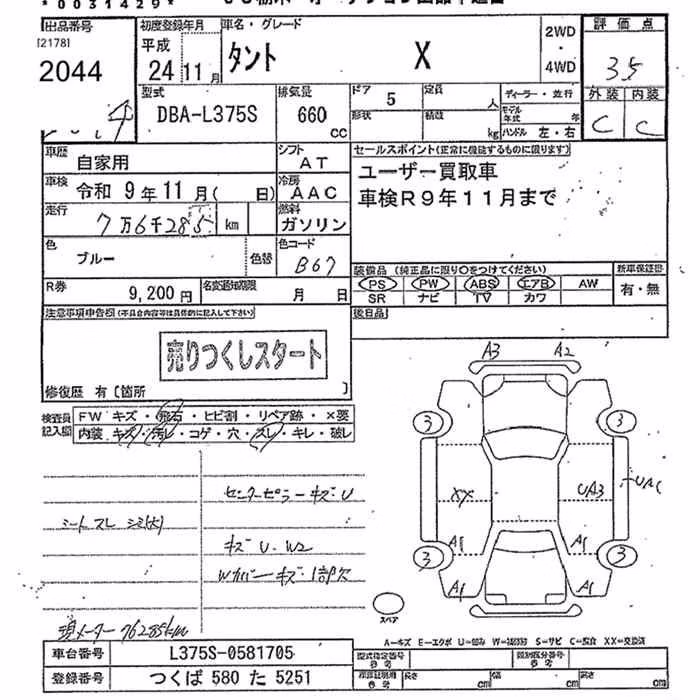 *0031429*
出品番号
[2178]
2044
初度登録年月
平成
24 11 月
車名・グレード
タント X
2WD
・
4WD
評価点
3.5
外装 内装
C C
型式
DBA-L375S
排気量
660
CC
ドア 5
定員
人
形状
積載
kg
ディーラー・並行
モデル年式 年
ハンドル 左・右
車歴
自家用
シフト
AT
車検
令和 9年11月( 日)
冷房
AAC
走行
7万6千285 km
燃料
ガソリン
色
ブルー
色替
色コード
B67
R券
9,200 円
名変通知期限
月 日
セールスポイント(正常に機能するものに限ります)
ユーザー買取車
車検R9年11月まで
装備品 (純正品に限り○をつけてください)
PS PW ABS エアB AW
SR ナビ TV カワ
新車保証書
有・無
後日品
注意事項申告欄(不具合内容等は具体的に記入して下さい)
売りつくしスタート
修復歴 有〔箇所 〕
検査員記入欄
FW キズ・飛石・ヒビ割・リペア跡・×要
内装 キズ・汚レ・コゲ・穴・スレ・キレ・破レ
センターピラーキズ・U
シートスレ シミ(大)
キズ U・W2
Wカバーキズ・1部欠
現メーター76285km
A3 A2
3 3
XX UA3 UA1
A1 A1
3 3
A1 A1
スペア
A=キズ E=エクボ U=凹み W=補修跡 S=サビ C=腐食 XX=交換済
車台番号
L375S-0581705
登録番号
つくば 580 た 5251
型式指定番号
参考
類別区分番号
参考
車庫証明用
参考
長さ cm
幅 cm
高さ cm